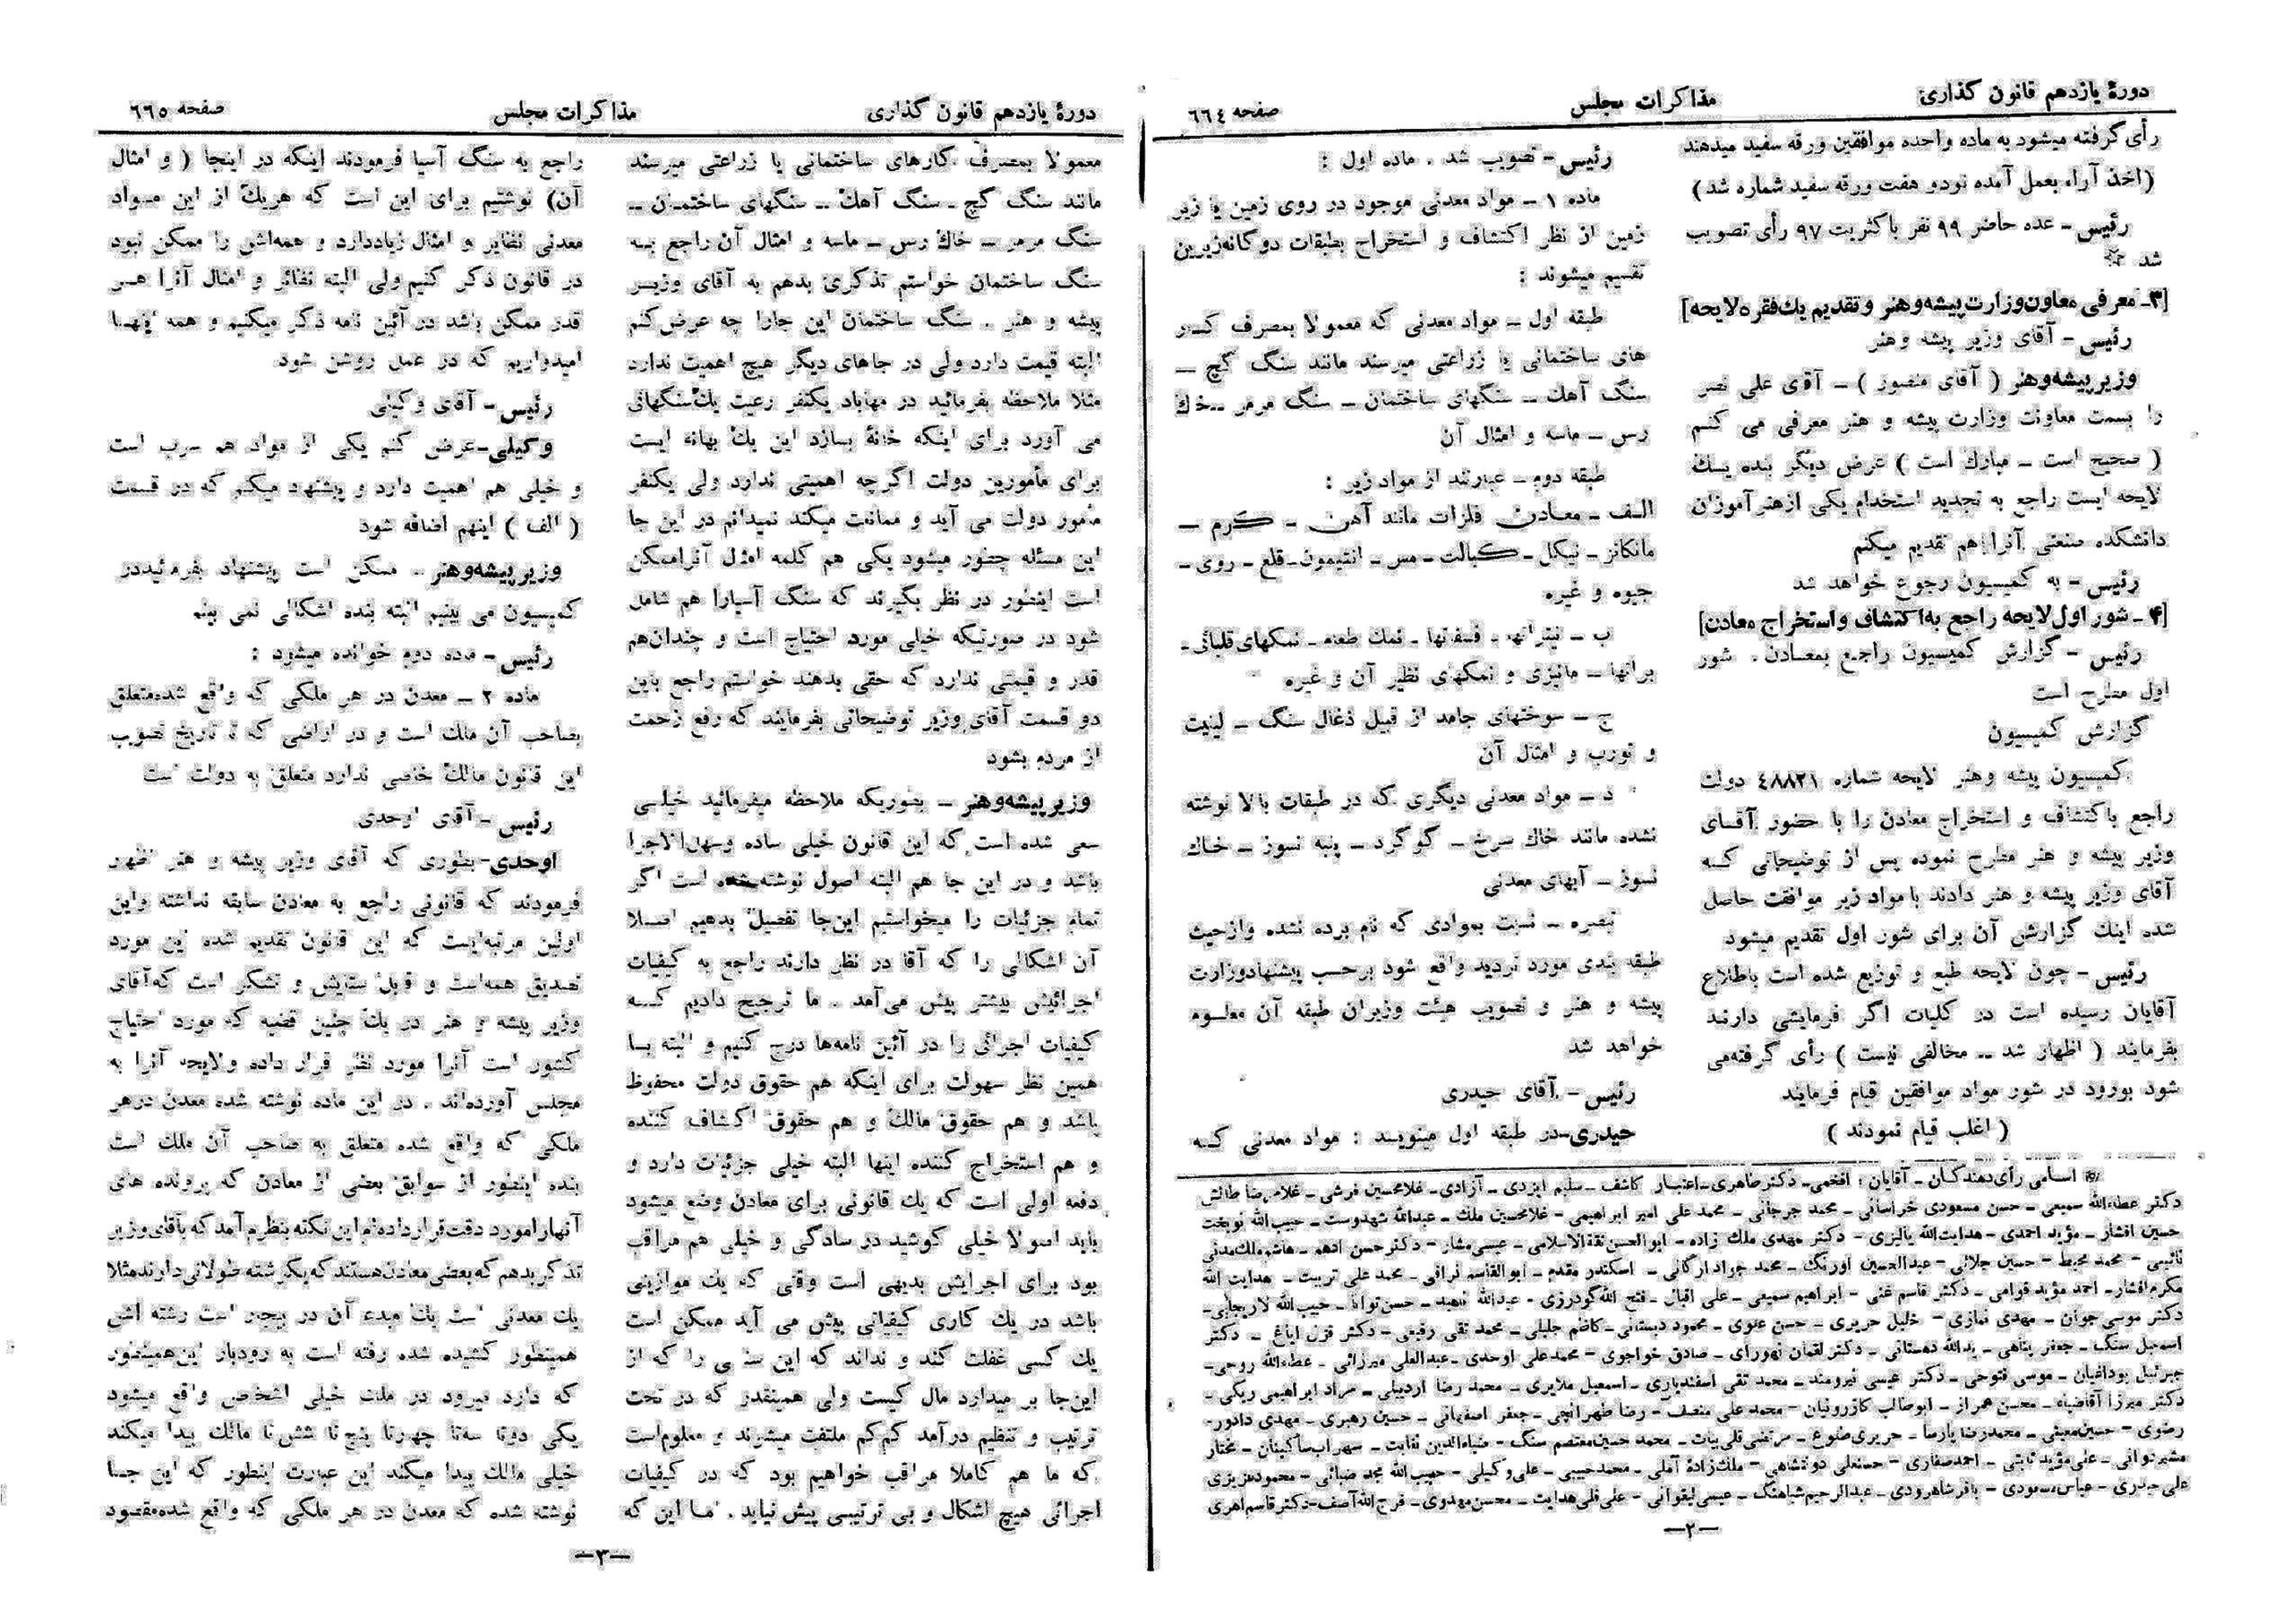 دورهٔ یازدهم قانون گذاری
مذاکرات مجلس
صفحه ٦٦٤
رأی گرفته میشود به ماده واحده موافقین ورقه سفید میدهند
(اخذ آراء بعمل آمده نود و هفت ورقه سفید شماره شد)
رئیس - عده حاضر ٩٩ نفر باکثریت ٩٧ رأی تصویب
شد ※
[٣ـ معرفی معاون وزارت پیشه و هنر و تقدیم یك فقره لایحه]
رئیس - آقای وزیر پیشه وهنر
وزیر پیشه وهنر ( آقای منصور ) - آقای علی نصر
را بسمت معاونت وزارت پیشه و هنر معرفی می کنم
( صحیح است - مبارك است ) عرض دیگر بنده یك
لایحه ایست راجع به تجدید استخدام یکی از هنرآموزان
دانشکده صنعتی آنرا هم تقدیم میکنم
رئیس - به کمیسیون رجوع خواهد شد
[۴ - شور اول لایحه راجع به اکتشاف و استخراج معادن]
رئیس - گزارش کمیسیون راجع بمعادن . شور
اول مطرح است
گزارش کمیسیون
کمیسیون پیشه وهنر لایحه شماره ٤٨٨٢١ دولت
راجع باکتشاف و استخراج معادن را با حضور آقای
وزیر پیشه و هنر مطرح نموده پس از توضیحاتی که
آقای وزیر پیشه و هنر دادند با مواد زیر موافقت حاصل
شده اینك گزارش آن برای شور اول تقدیم میشود
رئیس - چون لایحه طبع و توزیع شده است باطلاع
آقایان رسیده است در کلیات اگر فرمایشی دارند
بفرمایند ( اظهار شد - مخالفی نیست ) رأی گرفته می
شود بورود در شور مواد موافقین قیام فرمایند
( اغلب قیام نمودند )
رئیس - تصویب شد . ماده اول :
ماده ١ - مواد معدنی موجود در روی زمین یا زیر
زمین از نظر اکتشاف و استخراج بطبقات دوگانه زیرین
تقسیم میشوند :
طبقه اول - مواد معدنی که معمولا بمصرف کار
های ساختمانی یا زراعتی میرسند مانند سنگ گچ -
سنگ آهك - سنگهای ساختمان - سنگ مرمر - خاك
رس - ماسه و امثال آن
طبقه دوم - عبارتند از مواد زیر :
الف - معادن فلزات مانند آهن - کرم -
مانگانز - نیکل - کبالت - مس - انتیمون - قلع - روی -
جیوه و غیره
ب - نیتراتها - فسفتها - نمك طعام - نمکهای قلیائی -
براتها - مانیزی و نمکهای نظیر آن و غیره
ج - سوختهای جامد از قبیل ذغال سنگ - لینیت
و تورب و امثال آن
د - مواد معدنی دیگری که در طبقات بالا نوشته
نشده مانند خاك سرخ - گوگرد - پنبه نسوز - خاك
نسوز - آبهای معدنی
تبصره - نسبت بموادی که نام برده نشده و از حیث
طبقه بندی مورد تردید واقع شود برحسب پیشنهاد وزارت
پیشه و هنر و تصویب هیئت وزیران طبقه آن معلوم
خواهد شد
رئیس - آقای حیدری
حیدری - در طبقه اول مینویسد : مواد معدنی که
※ اسامی رأی دهندگان - آقایان : افخمی - دکتر طاهری - اعتبار - کاشف - سلیم ایزدی - آزادی - غلامحسین قرشی - غلامرضا طالش
دکتر عطاءالله سمیعی - حسن مسعودی خراسانی - محمد جرجانی - محمد علی امیر ابراهیمی - غلامحسین ملك - عبدالله شهدوست - حبیب الله نوبخت
حسین افشار - مؤید احمدی - هدایت الله پالیزی - دکتر مهدی ملك زاده - ابوالحسن ثقةالاسلامی - عیسی مشار - دکتر حسن ادهم - هاشم ملك مدنی
نائینی - محمد محیط - حسین جلائی - عبدالحسین اورنگ - محمد جواد ارگانی - اسکندر مقدم - ابوالقاسم نراقی - محمد علی تربیت - هدایت الله
مکرم افشار - احمد مؤید قوامی - دکتر قاسم غنی - ابراهیم سمیعی - علی اقبال - فتح الله گودرزی - عبدالله ناهید - حسن توانا - حبیب الله لاریجانی -
دکتر موسی جوان - مهدی نمازی - خلیل حریری - حسن علوی - محمود دبستانی - کاظم جلیلی - محمد تقی رفیعی - دکتر قزل ایاغ - دکتر
اسمعیل سنگ - جعفر پناهی - یدالله دهستانی - دکتر لقمان نهورای - صادق خواجوی - محمدعلی اوحدی - عبدالعلی میرزائی - عطاءالله روحی -
جبرئیل بوداغیان - موسی فتوحی - دکتر عیسی نیرومند - محمد تقی اسفندیاری - اسمعیل ملایری - محمد رضا اردبیلی - مراد ابراهیمی ریگی -
دکتر میرزا آقا ضیاء - محسن همراز - ابوطالب کازرونیان - محمد علی منصف - رضا طهرانچی - جعفر اصفهانی - حسین رهبری - مهدی دادور -
رضوی - حسین معینی - محمدرضا پارسا - حریری طلوع - مرتضی قلی بیات - محمد حسین معتصم سنگ - ضیاءالدین نقابت - سهراب ساگینان - مختار
مشیر دوانی - علی مؤید ثابتی - احمد صفاری - حسنعلی دولتشاهی - ملك زادهٔ آملی - محمد حبیبی - علی وکیلی - حبیب الله مجد ضیائی - محمود عزیزی
علی حیدری - عباس مسعودی - باقر شاهرودی - عبدالرحیم شباهنگ - عیسی لیقوانی - علی قلی هدایت - محسن مهدوی - فرج الله آصف - دکتر قاسم اهری
—٢—
دورهٔ یازدهم قانون گذاری
مذاکرات مجلس
صفحه ٦٦٥
معمولا بمصرف کارهای ساختمانی یا زراعتی میرسند
مانند سنگ گچ - سنگ آهك - سنگهای ساختمان -
سنگ مرمر - خاك رس - ماسه و امثال آن راجع به
سنگ ساختمان خواستم تذکری بدهم به آقای وزیر
پیشه و هنر . سنگ ساختمان این جارا چه عرض کنم
البته قیمت دارد ولی در جاهای دیگر هیچ اهمیت ندارد
مثلا ملاحظه بفرمائید در مهاباد یکنفر رعیت یك سنگهائی
می آورد برای اینکه خانهٔ بسازد این یك بهانه ایست
برای مأمورین دولت اگرچه اهمیتی ندارد ولی یکنفر
مأمور دولت می آید و ممانعت میکند نمیدانم در این جا
این مسئله چطور میشود یکی هم کلمه امثال آنرا ممکن
است اینطور در نظر بگیرند که سنگ آسیارا هم شامل
شود در صورتیکه خیلی مورد احتیاج است و چندان هم
قدر و قیمتی ندارد که حقی بدهند خواستم راجع باین
دو قسمت آقای وزیر توضیحاتی بفرمایند که رفع زحمت
از مردم بشود
وزیر پیشه وهنر - بطوریکه ملاحظه میفرمائید خیلی
سعی شده است که این قانون خیلی ساده وسهل الاجرا
باشد و در این جا هم البته اصول نوشته شده است اگر
تمام جزئیات را میخواستیم این جا تفصیل بدهیم اصلا
آن اشکالی را که آقا در نظر دارند راجع به کیفیات
اجرائیش بیشتر پیش می آمد . ما ترجیح دادیم که
کیفیات اجرائی را در آئین نامه‌ها درج کنیم و البته با
همین نظر سهولت برای اینکه هم حقوق دولت محفوظ
باشد و هم حقوق مالك و هم حقوق اکتشاف کننده
و هم استخراج کننده اینها البته خیلی جزئیات دارد و
دفعه اولی است که یك قانونی برای معادن وضع میشود
باید اصولا خیلی کوشید در سادگی و خیلی هم مراقب
بود برای اجرایش بدیهی است وقتی که یك موازینی
باشد در یك کاری کیفیاتی پیش می آید ممکن است
یك کسی غفلت کند و نداند که این سنگی را که از
این جا بر میدارد مال کیست ولی همینقدر که در تحت
ترتیب و تنظیم درآمد کم کم ملتفت میشوند و معلوم است
که ما هم کاملا مراقب خواهیم بود که در کیفیات
اجرائی هیچ اشکال و بی ترتیبی پیش نیاید . اما این که
راجع به سنگ آسیا فرمودند اینکه در اینجا ( و امثال
آن) نوشتیم برای این است که هریك از این مواد
معدنی نظایر و امثال زیاد دارد و همه‌اش را ممکن نبود
در قانون ذکر کنیم ولی البته نظائر و امثال آنرا هر
قدر ممکن باشد در آئین نامه ذکر میکنیم و همه اینها
امیدواریم که در عمل روشن شود
رئیس - آقای وکیلی
وکیلی - عرض کنم یکی از مواد هم سرب است
و خیلی هم اهمیت دارد و پیشنهاد میکنم که در قسمت
( الف ) اینهم اضافه شود
وزیر پیشه وهنر - ممکن است پیشنهاد بفرمائید در
کمیسیون می بینیم البته بنده اشکالی نمی بینم
رئیس - ماده دوم خوانده میشود :
ماده ٢ - معدن در هر ملکی که واقع شده متعلق
بصاحب آن ملك است و در اراضی که تا تاریخ تصویب
این قانون مالك خاصی ندارد متعلق به دولت است
رئیس - آقای اوحدی
اوحدی - بطوری که آقای وزیر پیشه و هنر اظهار
فرمودند که قانونی راجع به معادن سابقه نداشته و این
اولین مرتبه ایست که این قانون تقدیم شده این مورد
تصدیق همه است و قابل ستایش و تشکر است که آقای
وزیر پیشه و هنر در یك چنین قضیه که مورد احتیاج
کشور است آنرا مورد نظر قرار داده و لایحه آنرا به
مجلس آورده‌اند . در این ماده نوشته شده معدن در هر
ملکی که واقع شده متعلق به صاحب آن ملك است
بنده اینطور از سوابق بعضی از معادن که پرونده های
آنهارا مورد دقت قرار داده‌ام این نکته بنظرم آمد که بآقای وزیر
تذکر بدهم که بعضی معادن هستند که یك رشته طولانی دارند مثلا
یك معدنی است یك مبدء آن در بیجار است رشته اش
همینطور کشیده شده رفته است به رودبار این همینطور
که دارد میرود در ملك خیلی اشخاص واقع میشود
یکی دوتا سه‌تا چهارتا پنج تا شش تا مالك پیدا میکند
خیلی مالك پیدا میکند این عبارت اینطور که این جا
نوشته شده که معدن در هر ملکی که واقع شده مقصود
—٣—